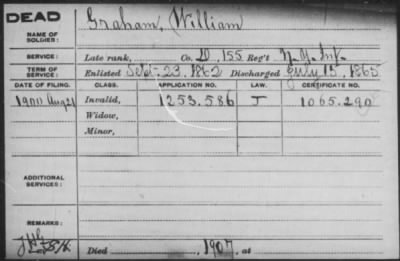 DEAD
Graham, William
NAME OF SOLDIER:
SERVICE: Late rank, Co. D, 155 Reg't N.Y. Inf.
TERM OF SERVICE: Enlisted Sept. 23, 1862 Discharged July 15, 1865
DATE OF FILING. CLASS. APPLICATION NO. LAW. CERTIFICATE NO.
1900 Aug 21 Invalid, 1253.586 J 1065.290
Widow,
Minor,
ADDITIONAL SERVICES:
REMARKS:
Died 1907, at